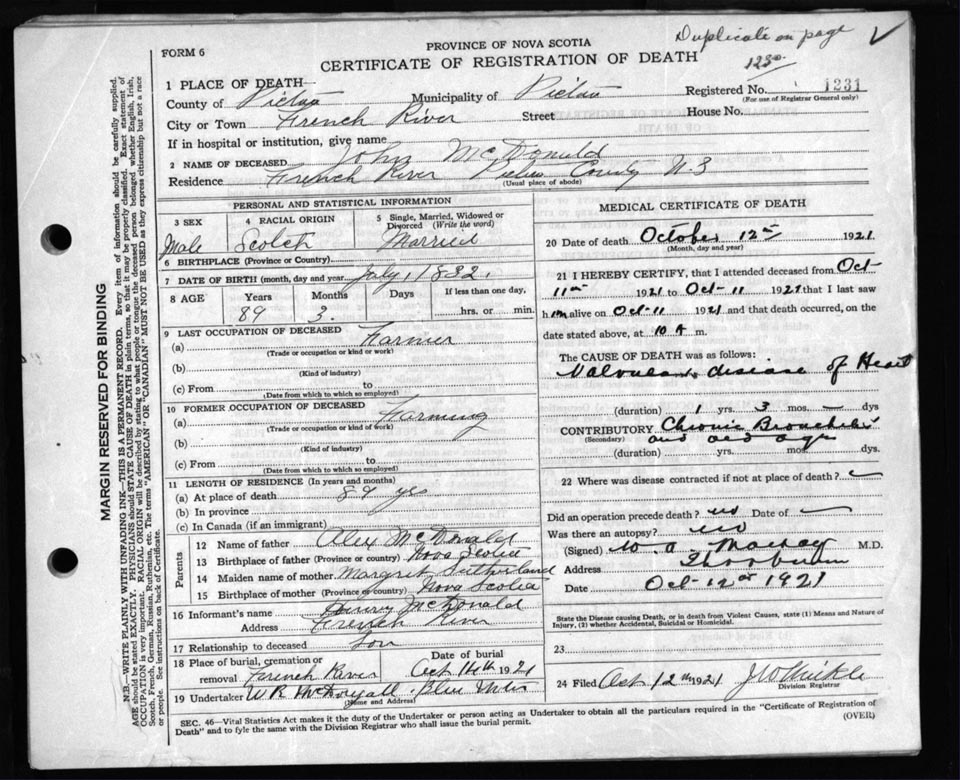 Duplicate on page
1230
FORM 6
PROVINCE OF NOVA SCOTIA
CERTIFICATE OF REGISTRATION OF DEATH
1 PLACE OF DEATH
County of Pictou Municipality of Pictou Registered No. 1231
(For use of Registrar General only)
City or Town French River Street House No.
If in hospital or institution, give name
2 NAME OF DECEASED John McDonald
Residence French River Pictou County N.S
(Usual place of abode)
PERSONAL AND STATISTICAL INFORMATION
3 SEX Male
4 RACIAL ORIGIN Scotch
5 Single, Married, Widowed or Divorced (Write the word) Married
6 BIRTHPLACE (Province or Country)
7 DATE OF BIRTH (month, day and year) July, 1832.
8 AGE Years 89 Months 3. Days If less than one day, hrs. or min.
9 LAST OCCUPATION OF DECEASED
(a) Farmer
(Trade or occupation or kind or work)
(b)
(Kind of industry)
(c) From to
(Date from which to which so employed)
10 FORMER OCCUPATION OF DECEASED
(a) Farming
(Trade or occupation or kind of work)
(b)
(Kind of industry)
(c) From to
(Date from which to which so employed)
11 LENGTH OF RESIDENCE (In years and months)
(a) At place of death 89 yrs
(b) In province
(c) In Canada (if an immigrant)
Parents
12 Name of father Alex McDonald
13 Birthplace of father (Province or country) Nova Scotia
14 Maiden name of mother Margret Sutherland
15 Birthplace of mother (Province or country) Nova Scotia
16 Informant's name McDonald
Address French River
17 Relationship to deceased Son
18 Place of burial, cremation or removal French River
Date of burial Oct 14th 1921
19 Undertaker W R Blue
(Name and Address)
MEDICAL CERTIFICATE OF DEATH
20 Date of death October 12th 1921
(Month, day and year)
21 I HEREBY CERTIFY, that I attended deceased from Oct-
11th 1921 to Oct-11 1921 that I last saw
him alive on Oct-11 1921 and that death occurred, on
date stated above, at 10 A m.
The CAUSE OF DEATH was as follows:
Valvular disease of Heart
(duration) 1 yrs. 3 mos. — dys
CONTRIBUTORY Chronic Bronchitis
(Secondary) and old age
(duration) yrs. mos. dys
22 Where was disease contracted if not at place of death?
Did an operation precede death? no Date of —
Was there an autopsy? no
(Signed) M.D.
Address Thorburn
Date Oct-12th 1921
State the Disease causing Death, or in death from Violent Causes, state (1) Means and Nature of Injury, (2) whether Accidental, Suicidal or Homicidal.
23
24 Filed Oct 12th 1921
Division Registrar
SEC. 46—Vital Statistics Act makes it the duty of the Undertaker or person acting as Undertaker to obtain all the particulars required in the "Certificate of Registration of
Death" and to fyle the same with the Division Registrar who shall issue the burial permit.
(OVER)
MARGIN RESERVED FOR BINDING
N.B.—WRITE PLAINLY WITH UNFADING INK—THIS IS A PERMANENT RECORD. Every item of information should be carefully supplied.
AGE should be stated EXACTLY. PHYSICIANS should STATE CAUSE OF DEATH in plain terms, so that it may be properly classified. Exact statement of
OCCUPATION is very important. RACIAL ORIGIN will be described by stating to what people or tongue the deceased person belonged whether English, Irish,
Scotch, French, German, Russian, Ruthenian, etc. The terms "AMERICAN" OR "CANADIAN" MUST NOT BE USED as they express citizenship but not a race
or people. See instructions on back of Certificate.